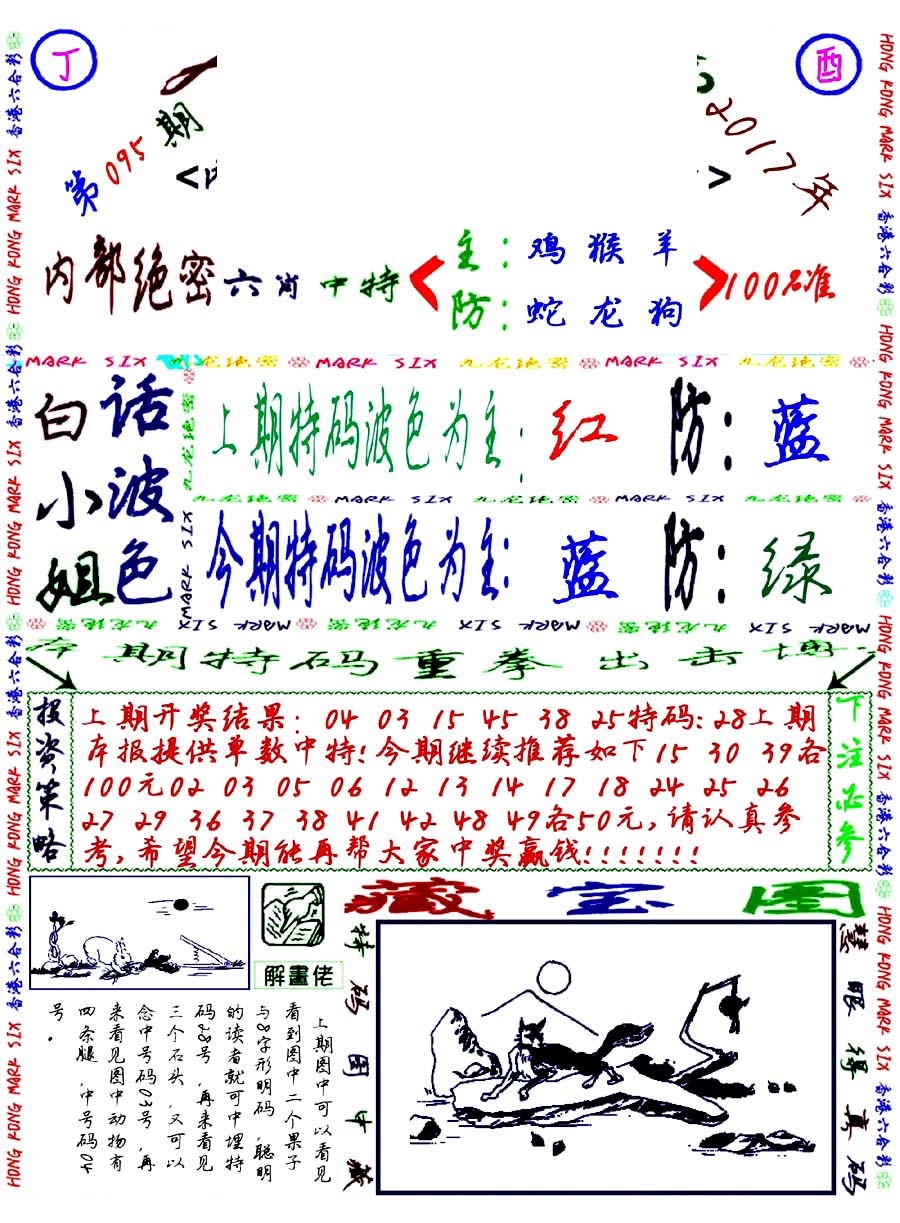 丁
酉
第095期
2017年
内部绝密六肖中特
主：鸡猴羊
防：蛇龙狗
100名准
白话小波姐色
上期特码波色为主：红 防：蓝
今期特码波色为主：蓝 防：绿
MARK SIX 九龙绝密 MARK SIX 九龙绝密 MARK SIX 九龙绝密
本期特码重拳出击博
投资策略
上期开奖结果：04 03 15 45 38 25特码：28上期
本报提供单数中特！今期继续推荐如下15 30 39各
100元02 03 05 06 12 13 14 17 18 24 25 26
27 29 36 37 38 41 42 48 49各50元，请认真参
考，希望今期能再帮大家中奖赢钱！！！！！！！
下注必参
解畫佬
藏宝图
特码图中藏
慧眼得真码
上期图中可以看见
看到图中二个果子
与8字形明码，聪明
的读者就可中埋特
码28号，再来看见
三个石头，又可以
念中号码03号，再
来看见图中动物有
四条腿，中号码04
号。
香港六合彩 HONG KONG MARK SIX 香港六合彩 HONG KONG MARK SIX 香港六合彩 HONG KONG MARK SIX 香港六合彩 HONG KONG MARK SIX
HONG KONG MARK SIX 香港六合彩 HONG KONG MARK SIX 香港六合彩 HONG KONG MARK SIX 香港六合彩 HONG KONG MARK SIX 香港六合彩